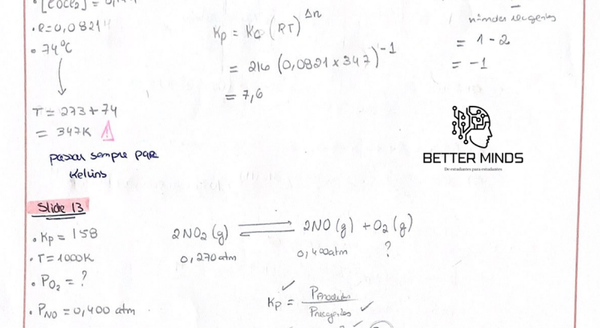 [COCl₂] = 0,14
• R = 0,0821
• 74°C
T = 273 + 74
= 347K
passar sempre para
Kelvins
Kp = Kc (RT)^Δn
= 216 (0,0821 × 347)^-1
= 7,6
= 1 - 2
= -1
BETTER MINDS
De estudantes para estudantes
Slide 13
• Kp = 158
• T = 1000K
• P_O₂ = ?
• P_NO = 0,400 atm
2NO₂(g) ⇌ 2NO(g) + O₂(g)
0,270 atm 0,400 atm ?
Kp = P Produtos / P reagentes